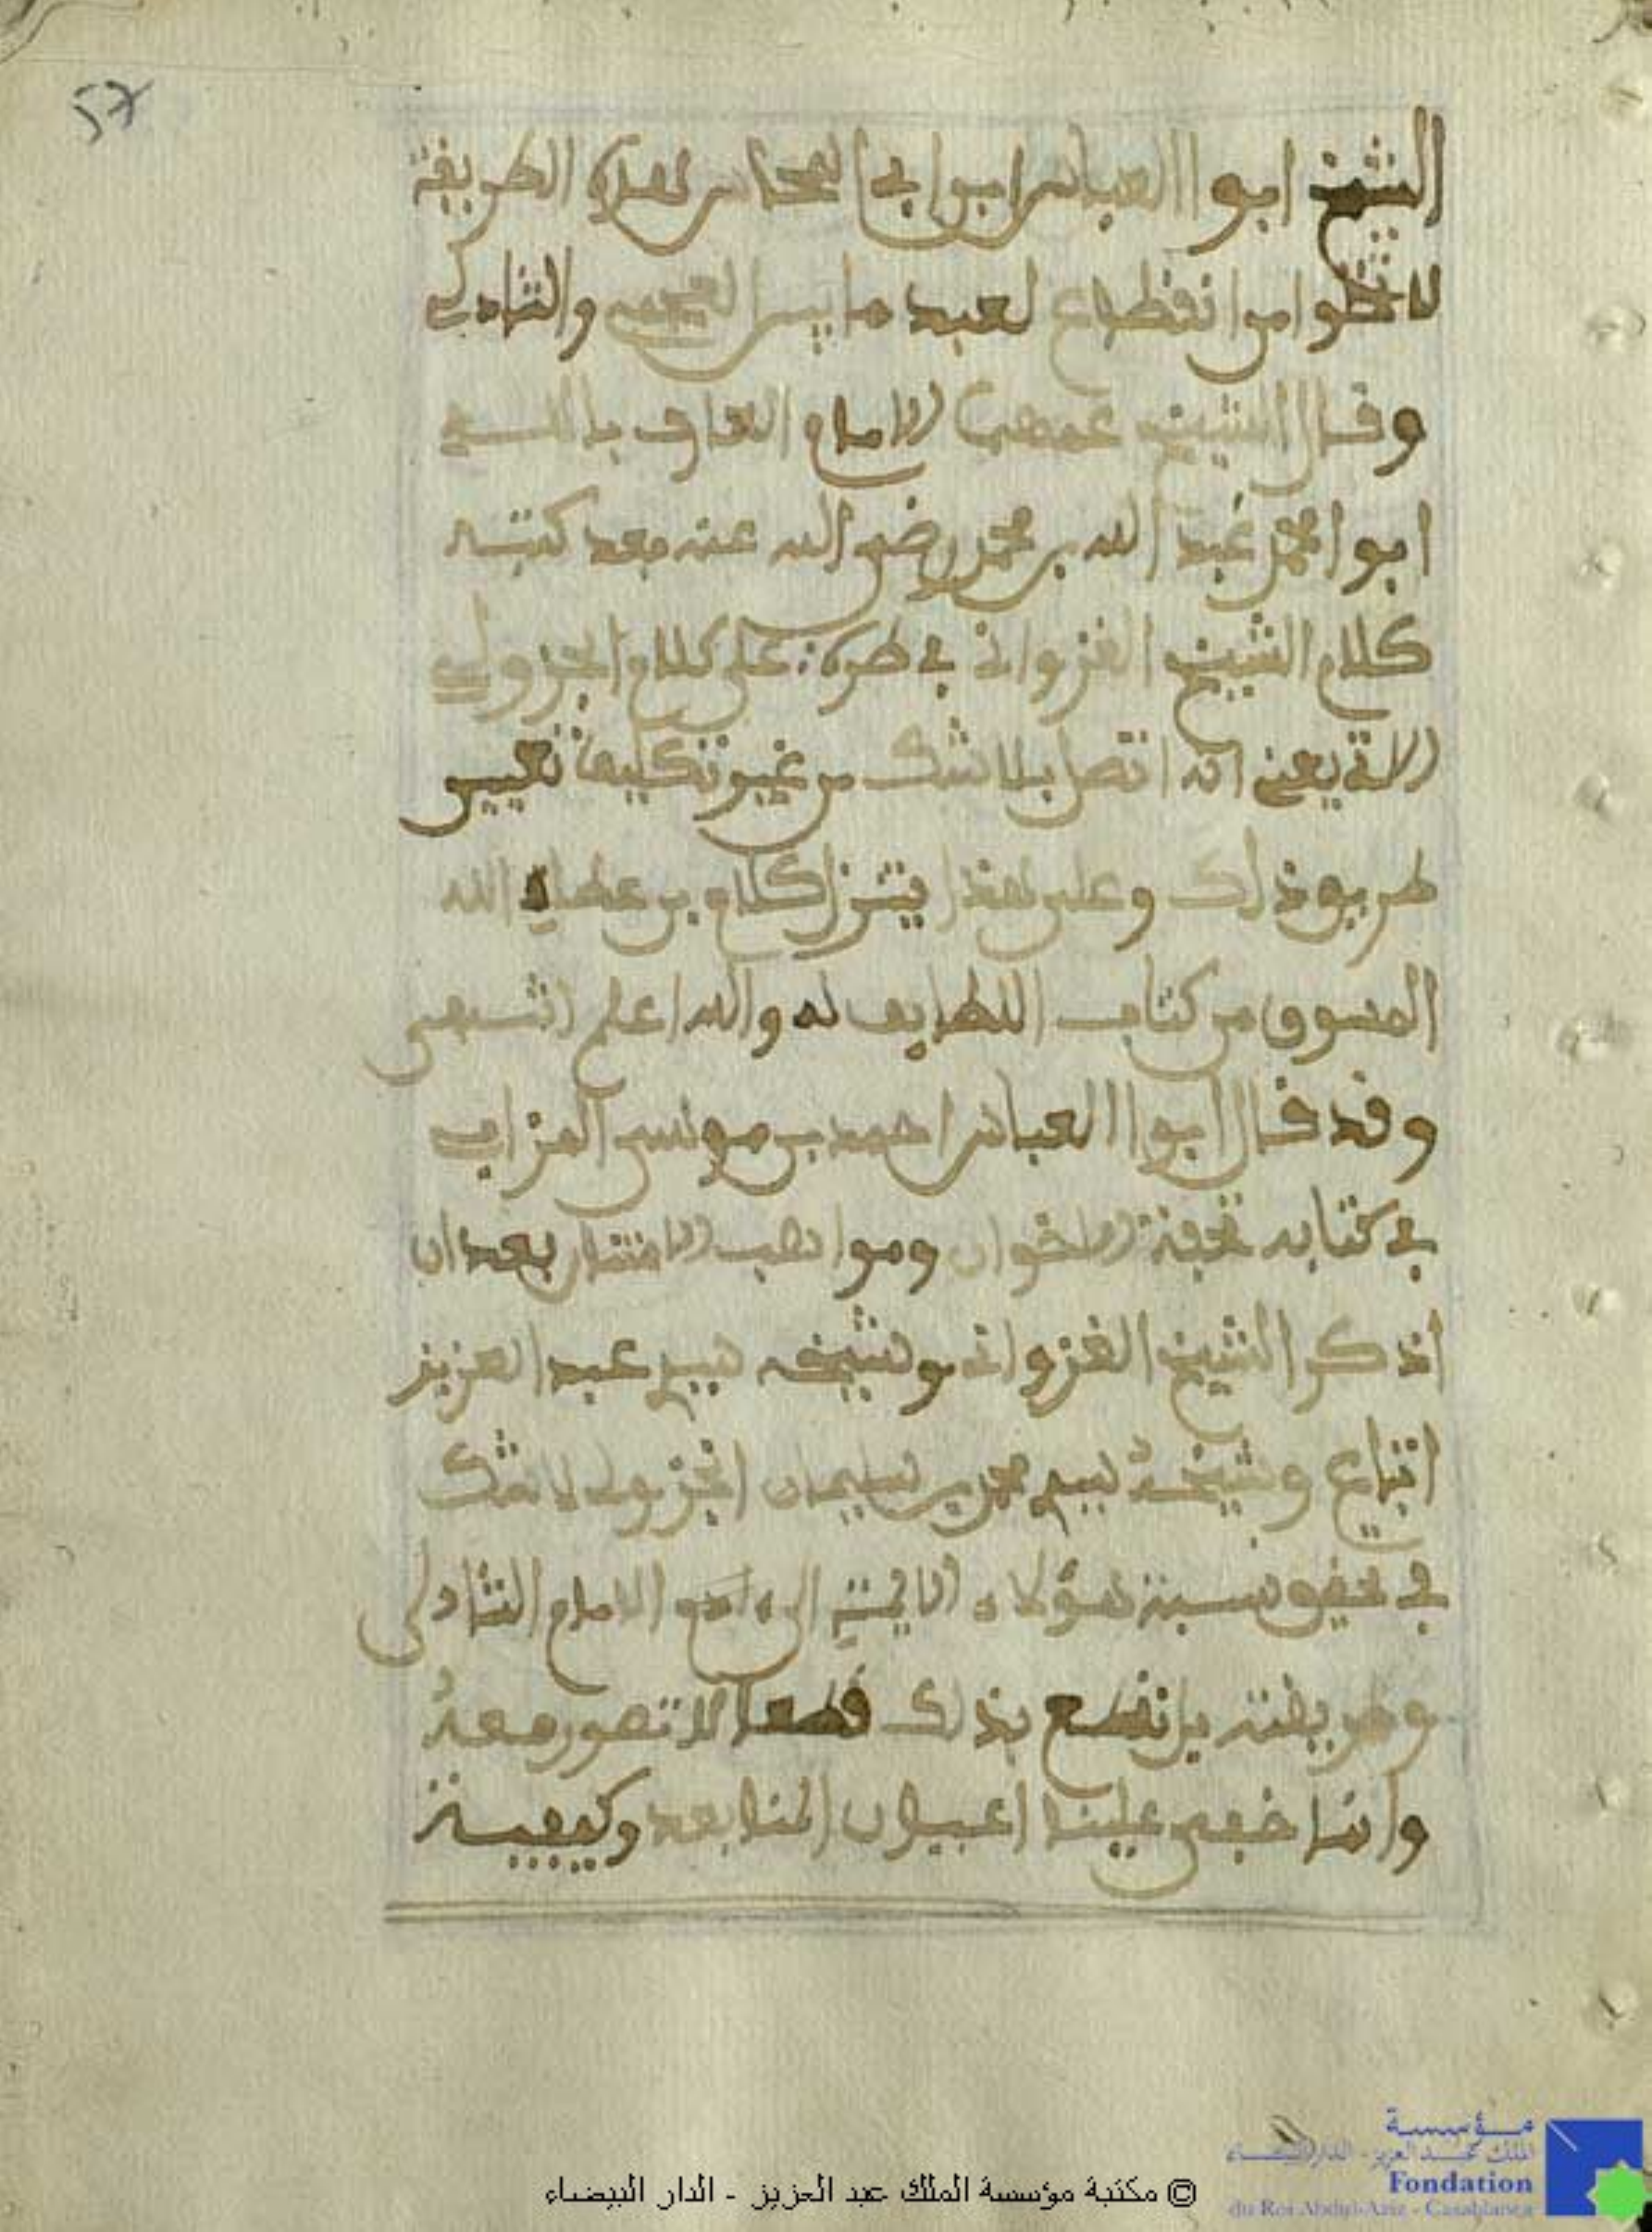 57
الشيخ ابوا العباس ابوا بي المحاسن هذه الطريقة
لا تخلوا من انقطاع لعبد ما بين الجميع والشاذلي
وقال الشيخ الامام العارف بالله
ابوا محمد عبد الله بن محمد رضي الله عنه بعد كتبه
كلام الشيخ الغزواني في طرة: على كلام الجزولي
يعني انه اتصل بلا شك من غير تكليف تعيين
طريق ذلك وعلى هذا يتنزل كلام بن عطاء الله
المسوق من كتاب اللطايف له والله اعلم انتهى
وقد قال ابوا العباس احمد بن موسى المرابي
في كتابه تحفة الاخوان ومواهب الامتنان بعد ان
اذكر الشيخ الغزواني وشيخه سيدي عبد العزيز
اتباع وشيخه سيدي محمد بن سليمان الجزولي لا شك
في تحقيق نسبة هؤلاء الايمة الى الامام الشاذلي
وطريقته بل نقطع بذلك قطعا لا تصور معه
وانما خفي علينا اعيان المنا بعد وكيفية
© مكتبة مؤسسة الملك عبد العزيز - الدار البيضاء
مؤسسة
الملك عبد العزيز - الدار البيضاء
Fondation
du Roi Abdul-Aziz - Casablanca